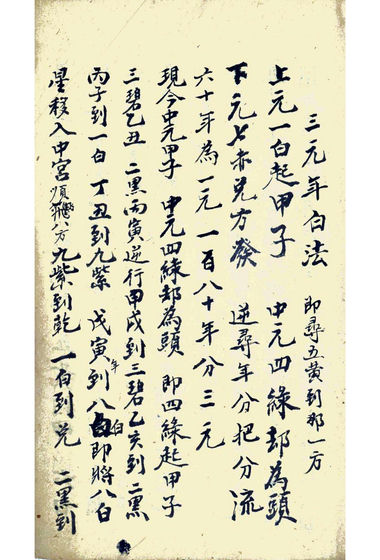 三元年白法 即尋五黃到那一方
上元一白起甲子 中元四綠却為頭
下元七赤兌方發 逆尋年分把分流
六十年為一元一百八十年分三元
現今中元甲子 中元四綠却為頭 即四綠起甲子
三碧乙丑 二黑丙寅逆行甲戌到三碧乙亥到二黑
丙子到一白 丁丑到九紫 戊寅年到八白即將八白
星移入中宮順飛八方九紫到乾 一白到兌 二黑到